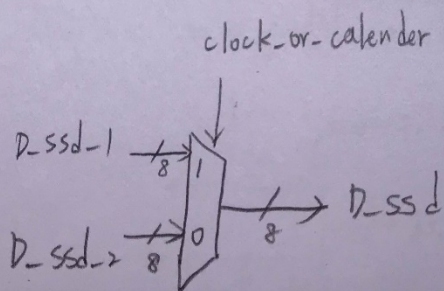 clock_or_calender
D_ssd_1
8
1
D_ssd
8
D_ssd_2
8
0